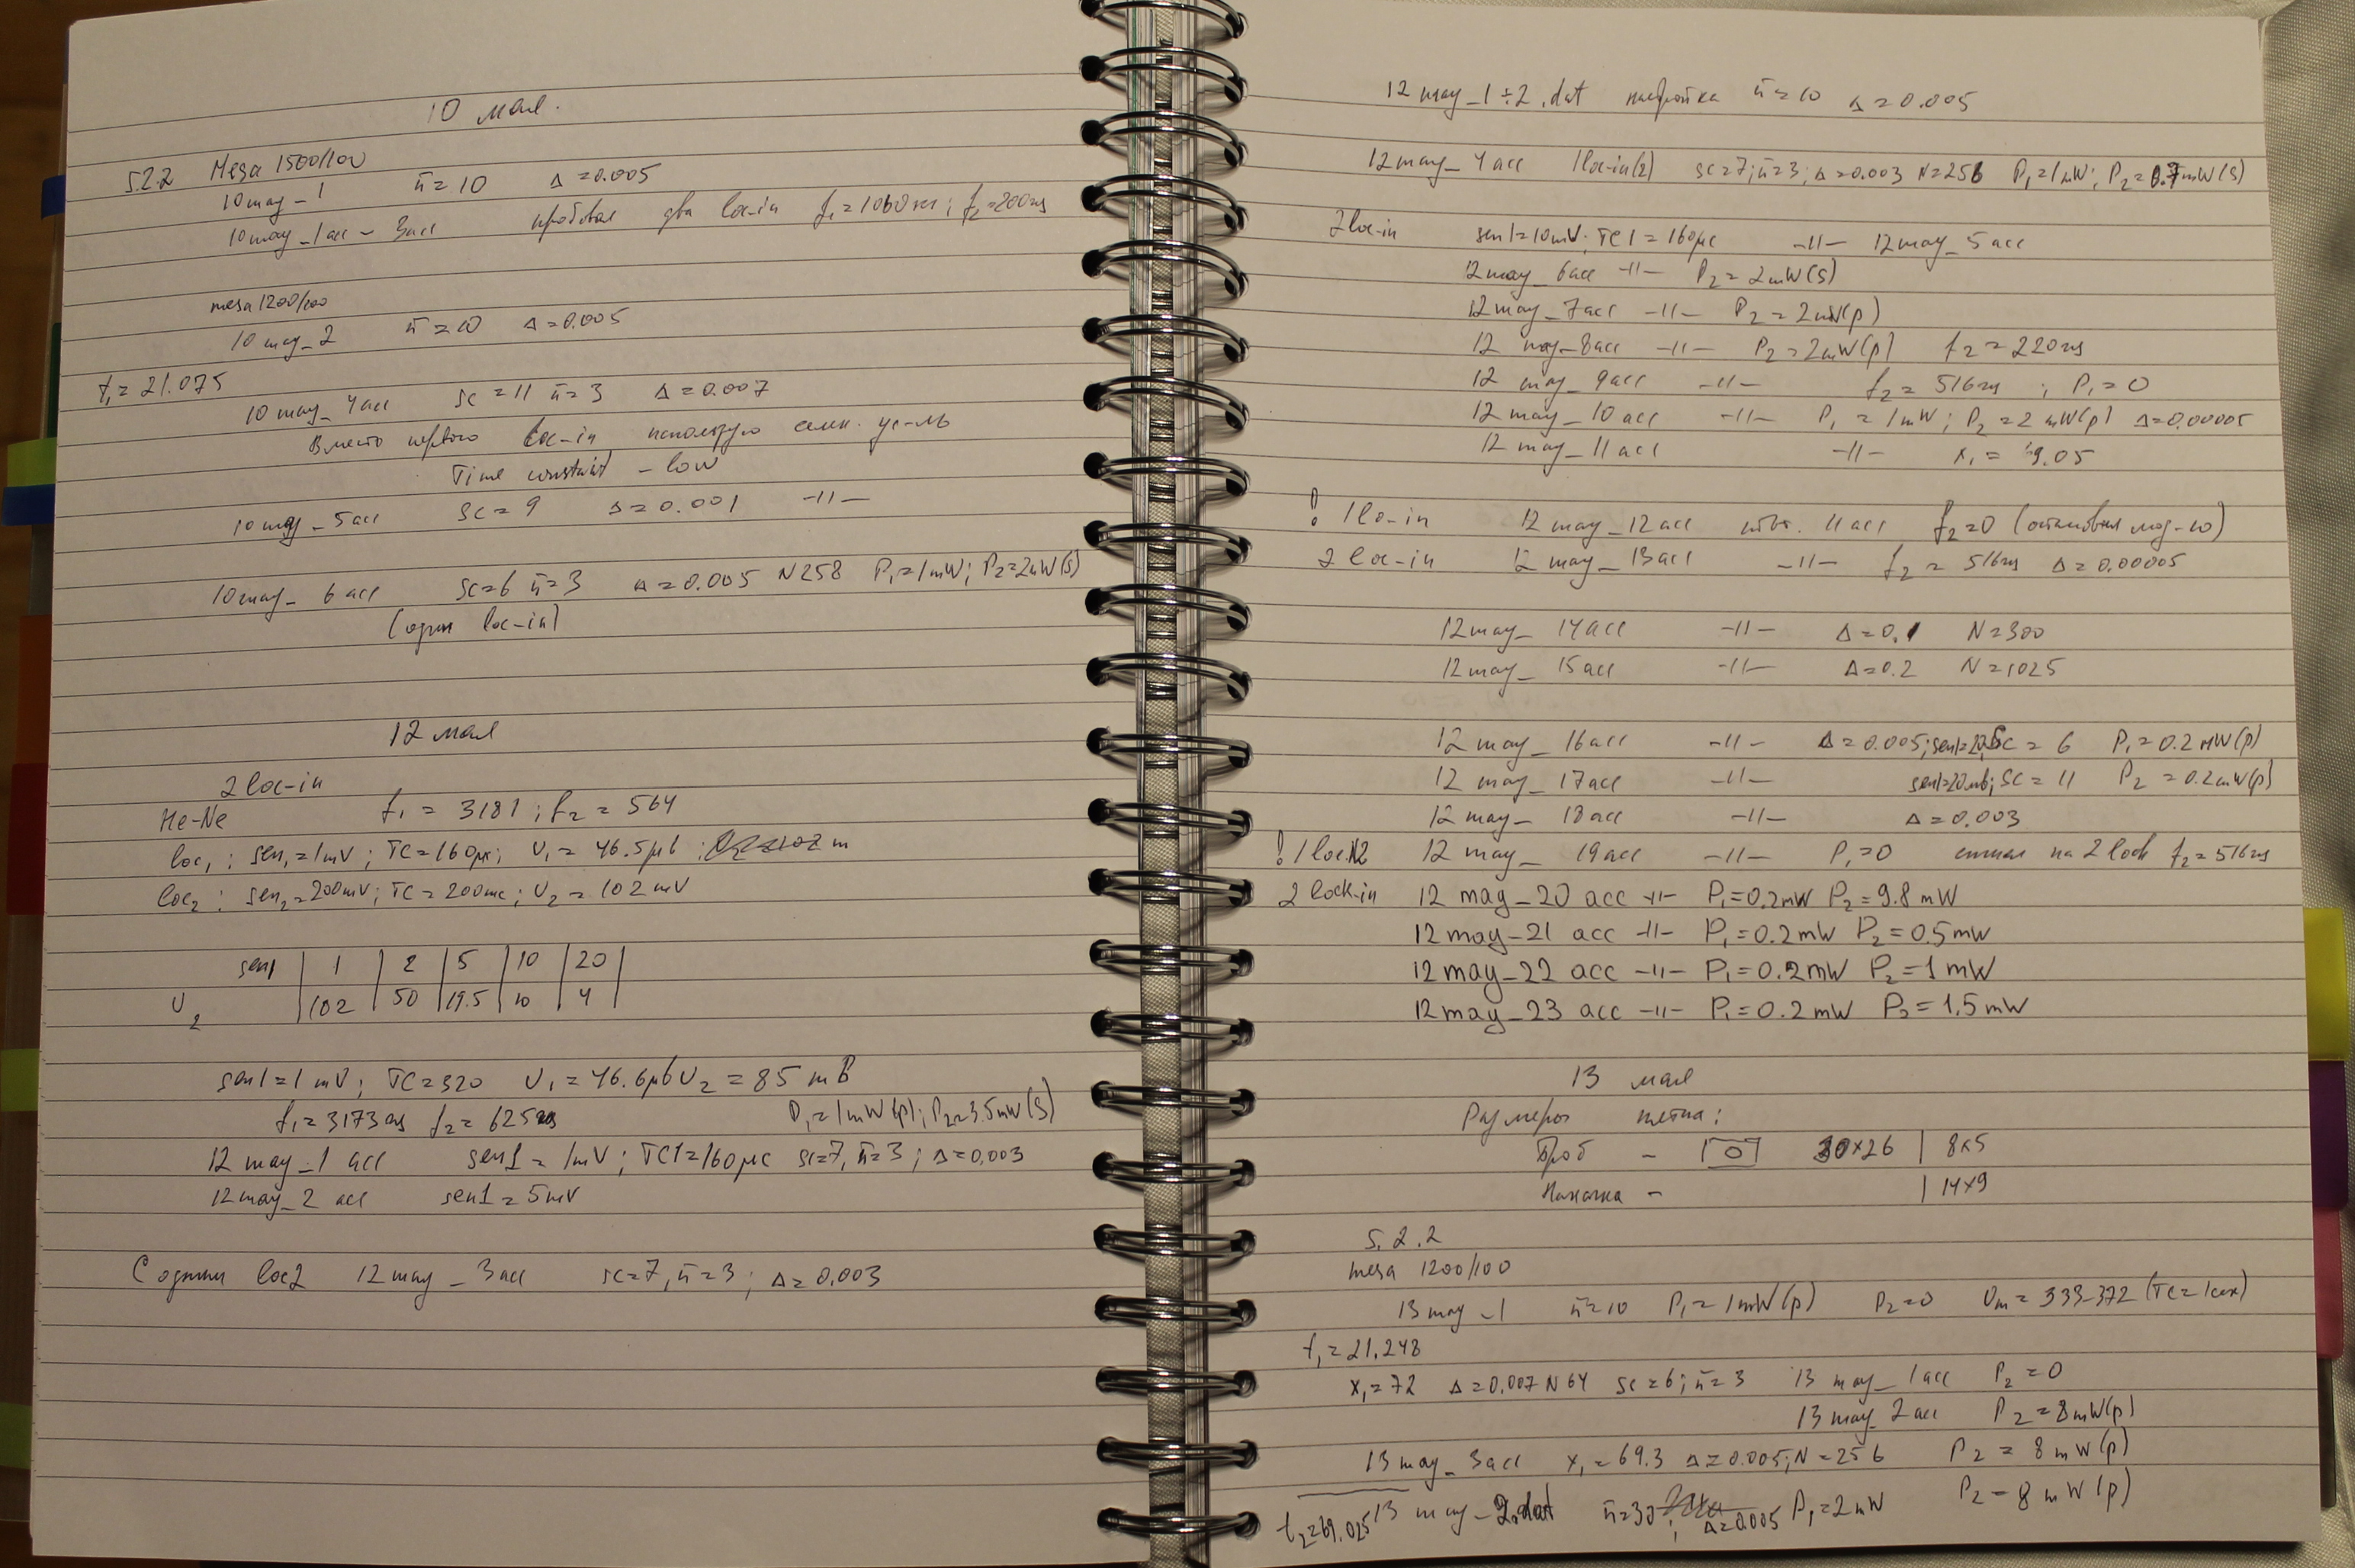 10 мая.
5.2.2 Mesa 1500/100
10may_1 n̄=10 Δ=0.005
10may_1acc - 3acc пробовал два loc-in f₁=1060гц; f₂=200гц
mesa 1200/100
10may_2 n̄=10 Δ=0.005
t₁=21.075
10may_4acc sc=11 n̄=3 Δ=0.007
Вместо первого loc-in использую селек. ус-ль
Time constant - low
10may_5acc sc=9 Δ=0.001 -11-
10may_6acc sc=6 n̄=3 Δ=0.005 N258 P₁=1mW; P₂=2mW(s)
(один loc-in)
12 мая
2loc-in
He-Ne f₁=3181; f₂=564
loc₁: sen₁=1mV; TC=160μс; U₁=46.5μв;
loc₂: sen₂=200mV; TC=200mс; U₂=102mV
sen1 | 1 | 2 | 5 | 10 | 20 |
U₂ | 102 | 50 | 19.5 | 10 | 4
sen1=1mV; TC=320 U₁=46.6μв U₂=85mВ
f₁=3173гц f₂=625гц P₁=1mW(p); P₂=3.5mW(s)
12may_1acc sen1=1mV; TC1=160μс sc=7, n̄=3; Δ=0.003
12may_2acc sen1=5mV
С одним loc2 12may_3acc sc=7, n̄=3; Δ=0.003
12may_1÷2.dat настройка n̄=10 Δ=0.005
12may_4acc 1loc-in(2) sc=7; n̄=3; Δ=0.003 N=256 P₁=1mW; P₂=0.7mW(s)
2loc-in sen1=10mV; TC1=160μс -11- 12may_5acc
12may_6acc -11- P₂=2mW(s)
12may_7acc -11- P₂=2mW(p)
12may_8acc -11- P₂=2mW(p) f₂=220гц
12may_9acc -11- f₂=516гц; P₁=0
12may_10acc -11- P₁=1mW; P₂=2mW(p) Δ=0.00005
12may_11acc -11- x₁=9.05
! 1lo-in 12may_12acc 11acc f₂=0 (остановил мод-ю)
2loc-in 12may_13acc -11- f₂=516гц Δ=0.00005
12may_14acc -11- Δ=0.1 N=300
12may_15acc -11- Δ=0.2 N=1025
12may_16acc -11- Δ=0.005; sen1=20; Sc=6 P₁=0.2mW(p)
12may_17acc -11- sen1=20мв; Sc=11 P₂=0.2mW(p)
12may_18acc -11- Δ=0.003
! 1loc.№2 12may_19acc -11- P₁=0 сигнал на 2lock f₂=516гц
2lock-in 12may_20acc -11- P₁=0.2mW P₂=9.8mW
12may-21 acc -11- P₁=0.2mW P₂=0.5mW
12may-22 acc -11- P₁=0.2mW P₂=1mW
12may-23 acc -11- P₁=0.2mW P₂=1.5mW
13 мая
Размеры пятна:
Проб - 30×26 | 8×5
Накачка - | 14×9
5.2.2
mesa 1200/100
13may_1 n̄=10 P₁=1mW(p) P₂=0 Um=333-372 (TC=1сек)
t₁=21.248
x₁=72 Δ=0.007 N64 sc=6; n̄=3 13may_1acc P₂=0
13may_2acc P₂=8mW(p)
13may_3acc x₁=69.3 Δ=0.005; N=256 P₂=8mW(p)
t₂=69.025 13may_2.dat n̄=30; Δ=0.005 P₁=2mW P₂=8mW(p)